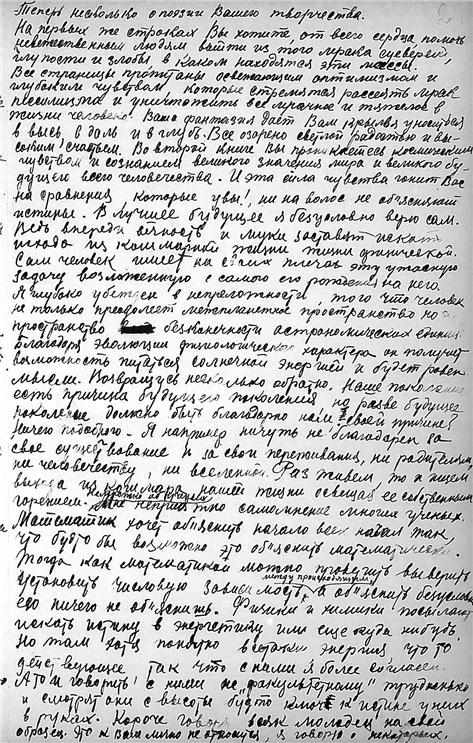 Теперь несколько о поэзии Вашего творчества.
На первых же строках Вы хотите от всего сердца помочь
невежественным людям выйти из того мрака суеверий,
глупости и злобы, в каком находятся эти массы.
Все страницы пропитаны освежающим оптимизмом и
глубоким чувством, которые стремятся рассеять мрак
пессимизма и уничтожить все мрачное и тяжелое в
жизни человека. Ваша фантазия дает Вам крылья уноситься
в высь, в даль и в глубь. Все озарено светлой радостью и вы-
соким счастьем. Во второй книге Вы проникаетесь космическим
чувством и сознанием великого значения мира и великого бу-
дущего всего человечества. И эта сила чувства гонит Вас
на сравнения которые увы!, ни на волос не объясняют
истины. В лучшее будущее я безусловно верю сам.
Ведь впереди вечность и муки заставят искать
исхода из кошмарной жизни жизни физической.
Сам человек имеет на своих плечах эту ужасную
задачу возложенную с самого его рождения на него.
Я глубоко убежден в непреложности, того что человек
не только преодолеет межпланетное пространство но и
пространство бесконечности астрономических единиц.
благодаря эволюции физиологического характера он получит
возможность питаться солнечной энергией и будет равен
мысли. Возвращусь несколько обратно. Наше поколение
есть причина будущего поколения но разве будущее
поколение должно быть благодарно нам своей причине?
Ничего подобного. Я например ничуть не благодарен за
свое существование и за свои переживания, ни родителям,
ни человечеству, ни вселенной. Раз живем, то и ищем
выхода из кошмара нашей жизни освещая ее собственным
горением. Мне неприятно самомнение многих ученых.
Математик хочет объяснить начало всех начал так,
что будто бы возможно это объяснить математически.
Тогда как математикой можно проверить выверить
установить числовую зависимость между происходящим, а объяснить безусловно
ею ничего не объяснишь. Физики и химики посылают
искать истину в энергетику или еще куда нибудь.
Но там хотя понятно все таки энергия что то
действующее так что с ними я более согласен.
А то и говорить с ними не "факультетному" трудненько
и смотрят они с высоты будто ключ к истине у них
в руках. Короче говоря всяк молодец на свой
образец. Это к Вам лично не относится, я говорю о некоторых.